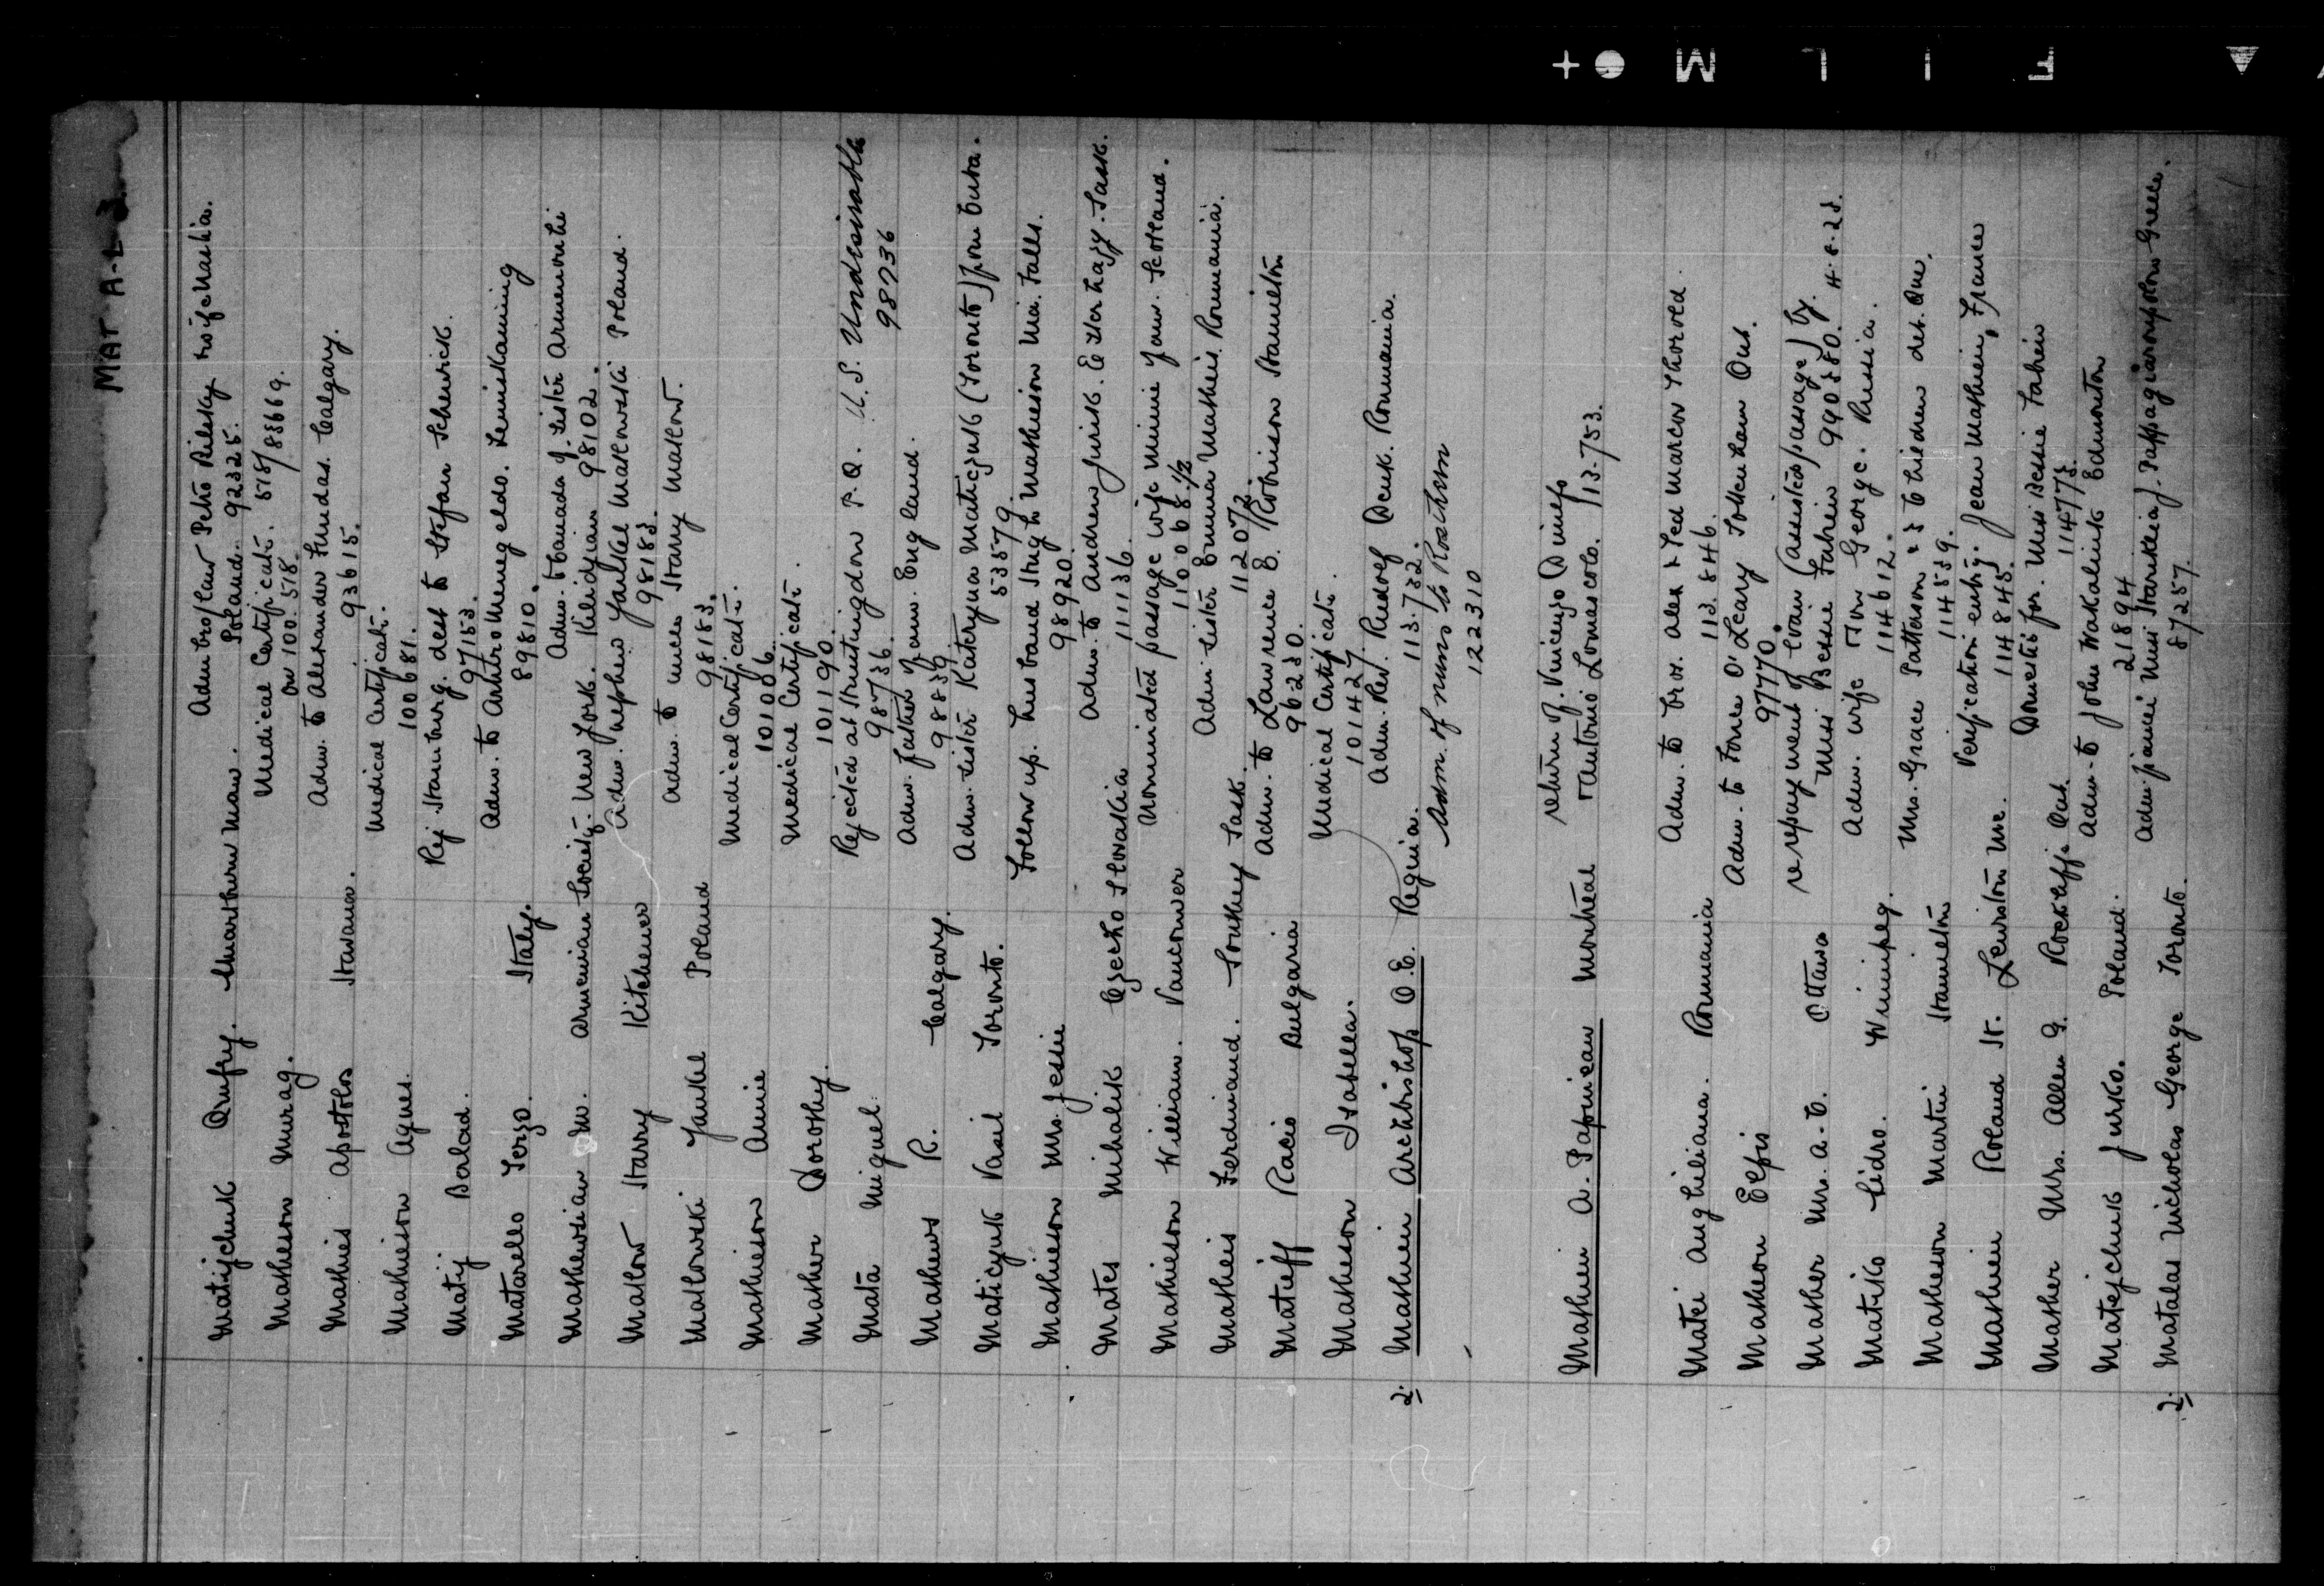 MAT A-L 3
Matijchuk Onufry. Smarthun Man. Adm bro/law Petro Rilesky wife Maria.
Poland. 92325.
Matheson Murag. Medical Certificate. 578/83669.
on 100.578.
Mathies Apostolos Havana. Adm. to Alexander Hudas. Calgary.
93615.
Mathieson Agnes. Medical Certificate.
100681.
Matij Berlad. Rej. Hamburg. dest to Stefan Schewick.
97153.
Matarello Terzo. Italy. Adm. to Antrotmenegeldo. Temiskaming
89810.
Mathewsian M. Armenian Society. New York. Adm. to Canada of sister Armenouhi
Keleidjian 98102.
Matlow Harry Kitchener Adm. nephew Yankel Matlowski Poland.
98183.
Matlowski Yankel Poland Adm. to uncle Harry Matlow.
98183.
Mathieson Annie Medical Certificate.
101006.
Mather Dorothy. Medical Certificate.
101190.
Mata Miguel Rejected at Huntingdon P.Q. U.S. Undesirable
98736. 98736
Mathews R. Calgary. Adm. father & fam. England.
98839.
Maticyuk Vasil Toronto. Adm. sister Kateryna Maticzuk (Toronto) from Cuba.
53579.
Mathieson Mrs. Jessie Follow up. husband Hugh Mathieson Nia. Falls.
98920.
Mates Mihalik Czecho Slovakia Adm. to Andrew Jurik. Esterhazy. Sask.
111136.
Mathieson William. Vancouver Nominated passage wife Minnie fam. Scotland.
110068.1/2
Matheis Ferdinand. Southey Sask. Adm sister Emma Matheis Roumania.
112072.
Matieff Racio Bulgaria Adm. to Lawrence B. Robinson Hamilton
96230.
Matheson Isabella. Medical Certificate.
101427.
2. Mathieu Archbishop O.E. Regina. Adm. Rev. Rudolf Denk. Roumania.
113.732.
Adm. of nuns to Rosthern
122310
Mathieu A. Papineau Montreal return of. Vincenzo Dimeo
& Antonio Lomascolo. 113.753.
Matei Anghiliana. Roumania Adm. to bro. Alex & Ted Marcou Thorold.
113.846.
Matheson Elpis Adm. to Force O'Leary Tottenham Ont.
97770.
Mather Mrs. A.C. Ottawa re repayment of loan (assisted passage) by.
Miss Bessie Fahein 990580. 4.8.23.
Matisko Sidro. Winnipeg. Adm. wife & son George. Russia.
114612.
Matheson Martin Hamilton Mrs. Grace Patterson & 3 children det. Que.
114539.
Mathieu Roland St. Lewiston Me. Verification entry. Jean Mathieu, France
114845.
Mather Mrs. Allen G. Rockcliffe Ont. Domestic for. Miss Bessie Fahein
114773.
Matejchuk Jurko. Poland. Adm. to John Wakaliuk Edmonton
21894
2. Matalas Nicholas George Toronto. Adm fiancee Miss Starikeia J. Pappagiannopolou Greece.
87257.
FILM